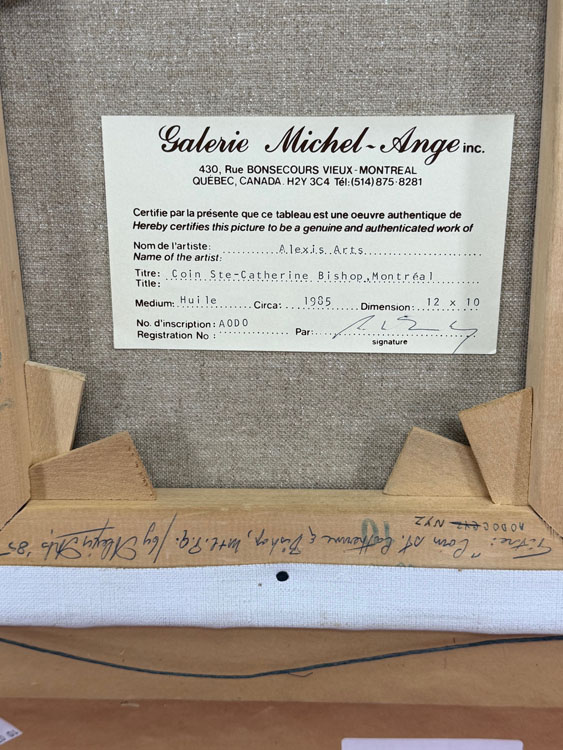 Galerie Michel-Ange inc.
430, Rue BONSECOURS VIEUX-MONTREAL
QUÉBEC, CANADA. H2Y 3C4 Tél:(514) 875-8281
Certifie par la présente que ce tableau est une oeuvre authentique de
Hereby certifies this picture to be a genuine and authenticated work of
Nom de l'artiste: Alexis Arts
Name of the artist:
Titre: Coin Ste-Catherine Bishop, Montréal
Title:
Medium: Huile Circa: 1985 Dimension: 12 x 10
No. d'inscription: AODO Par:
Registration No :
signature
AODO NYZ
Titre: "Corn St. Catherine & Bishop, Mtl. P.Q. / by Alexis Arts '85
10